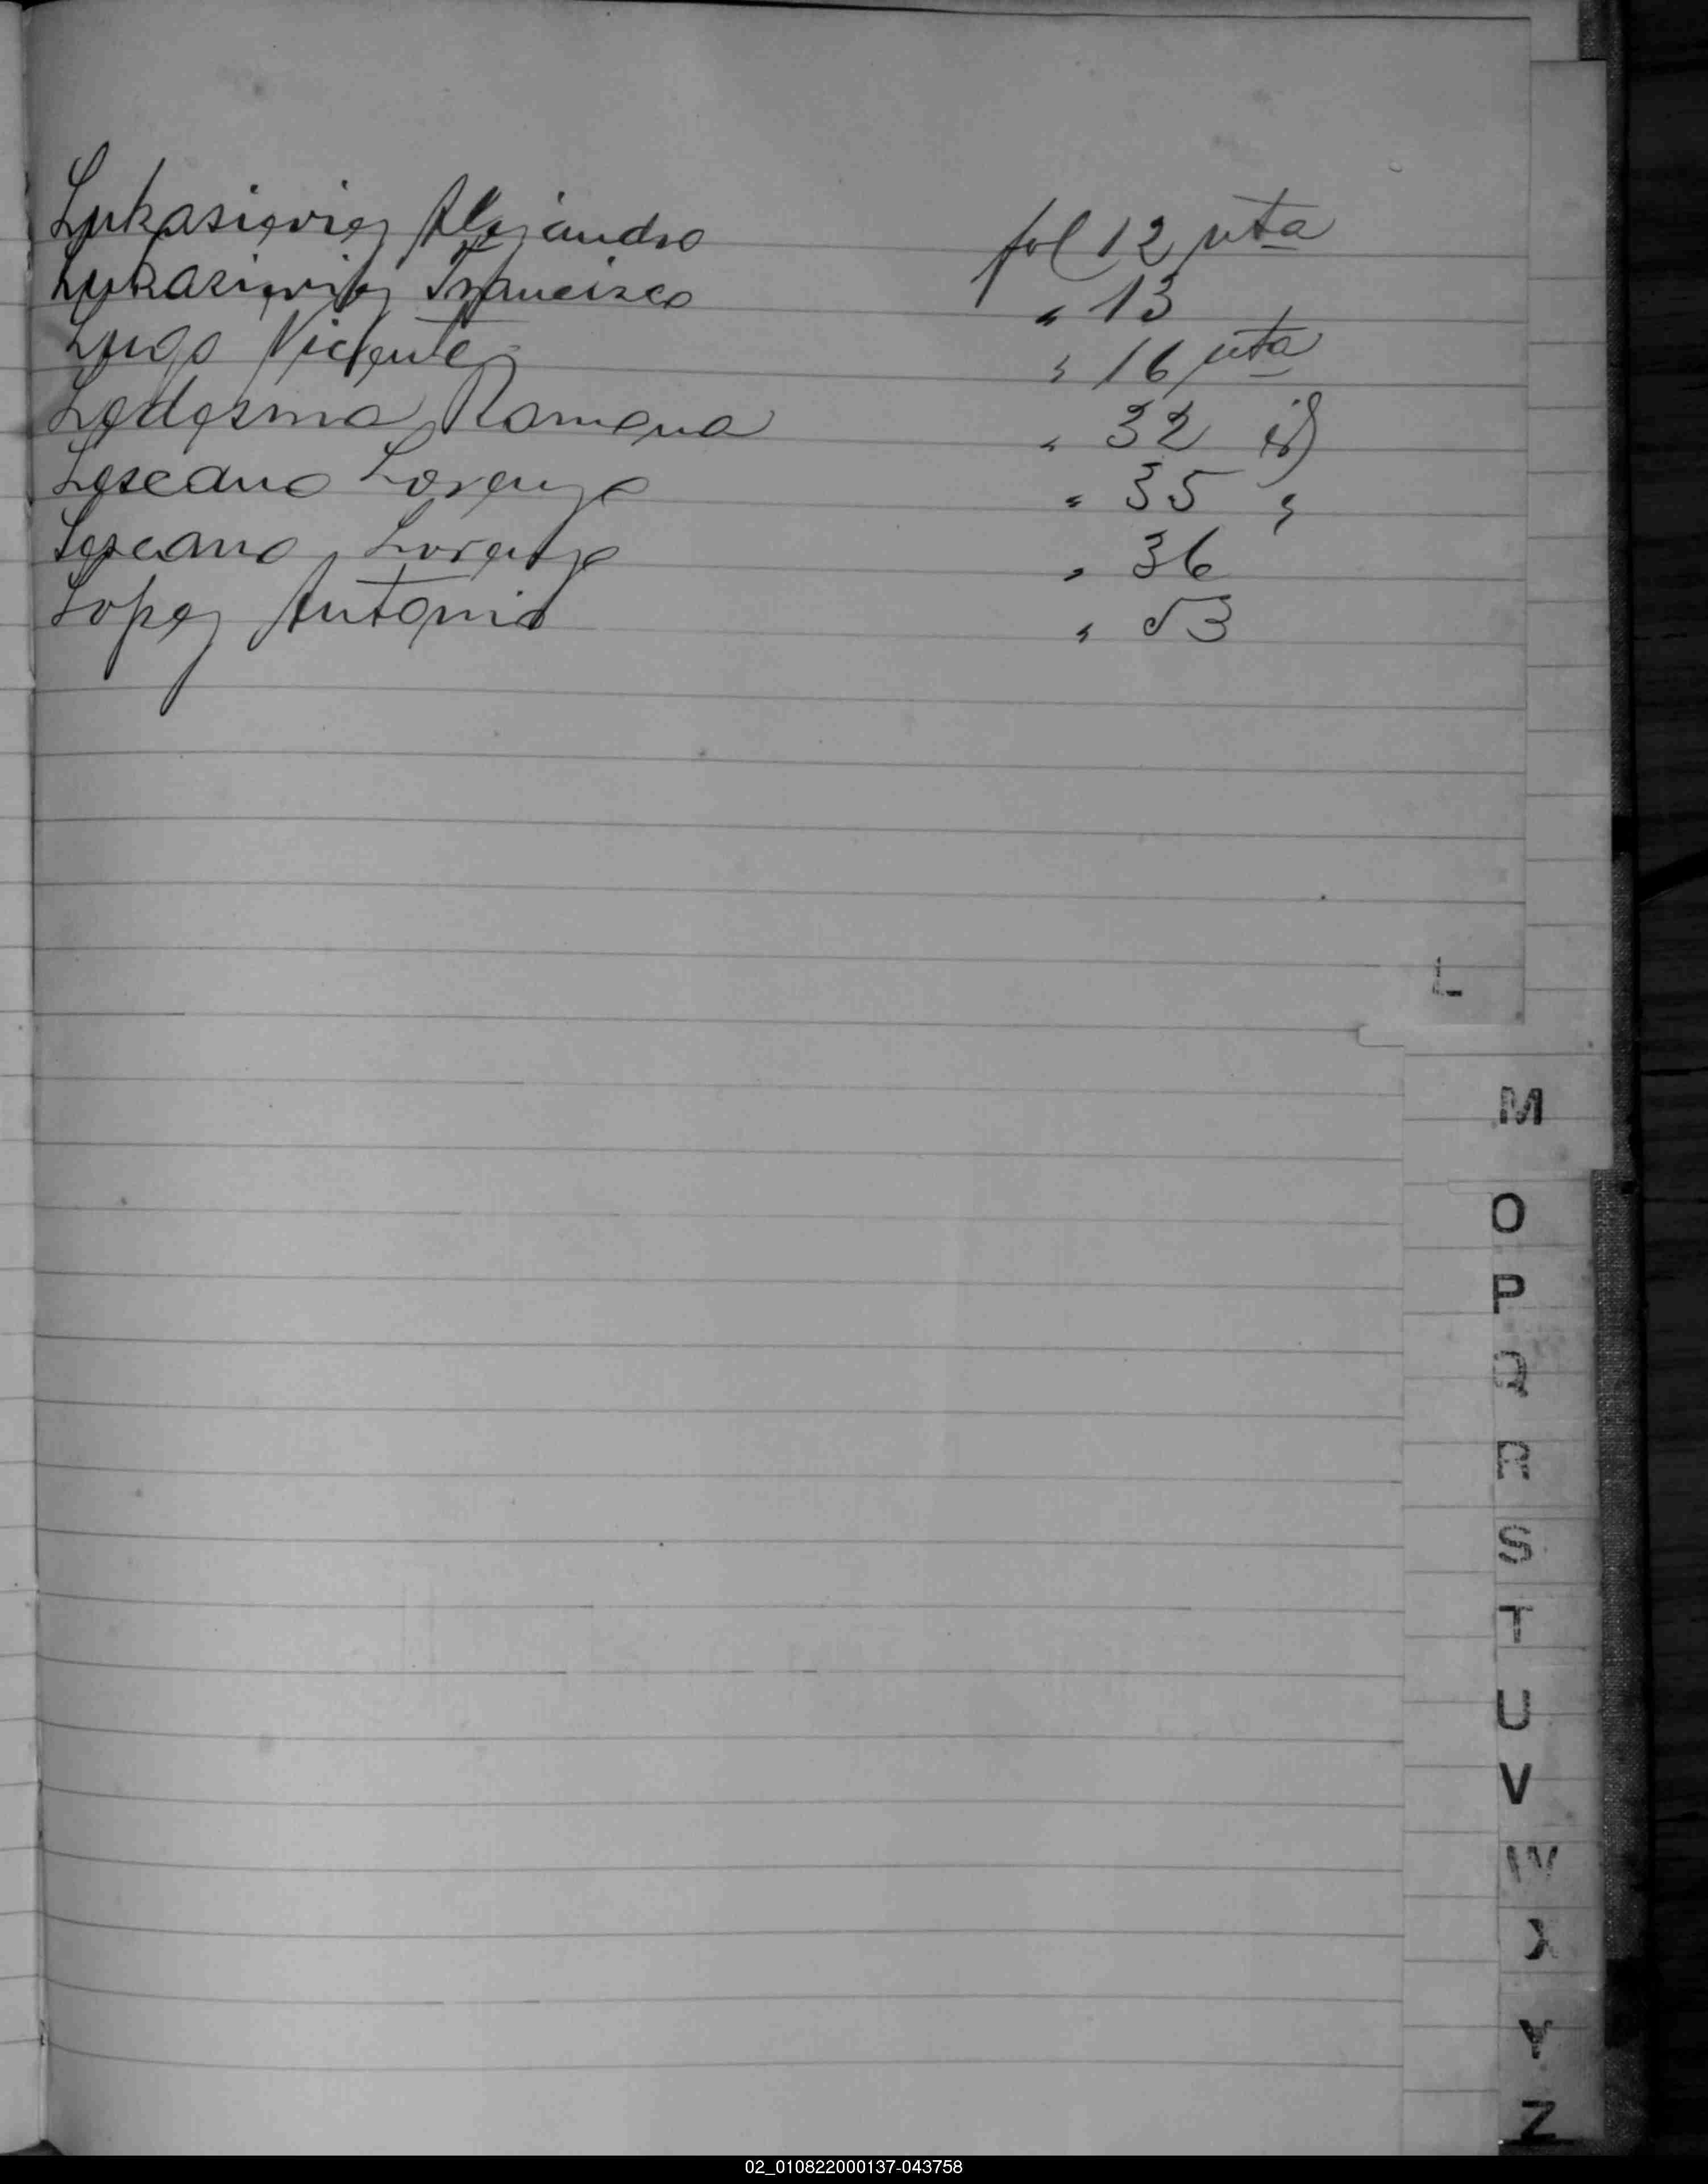 Lukasieviez Alejandro fol 12 vta
Lukasieviez Francisco " 13
Lugo Vicente " 16 vta
Ledesma Romana " 32 id
Lescano Lorenzo " 35 "
Lescano Lorenzo " 36
Lopez Antonio " 53
L
M
O
P
Q
R
S
T
U
V
W
X
Y
Z
02_010822000137-043758